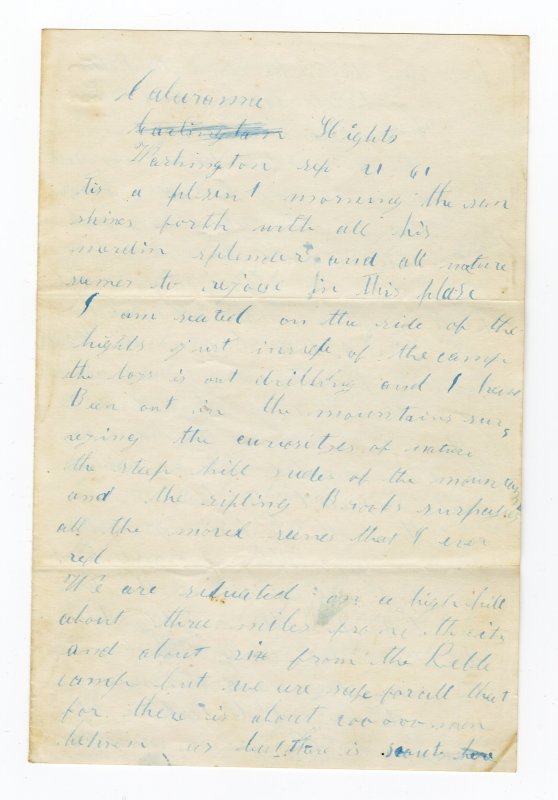 Caluranna
Hights
Washington sep 21 61
tis a plesint morning the sun
shines forth with all his
mordin splender and all nature
semes to rejoue in this plase
I am seated on the side of the
hights just inside of the camp
the boys is out drilling and I have
Been out in the mountains sur
veying the curiosities of nature
the steep hill sides of the mountan
and the ripling Brooks surpases
all the moral senes that I ever
red
We are situated on a high hill
about three miles from the city
and about six from the Reble
camp but we are safe for all that
for there is about 100000 men
betwen us but there is scouts